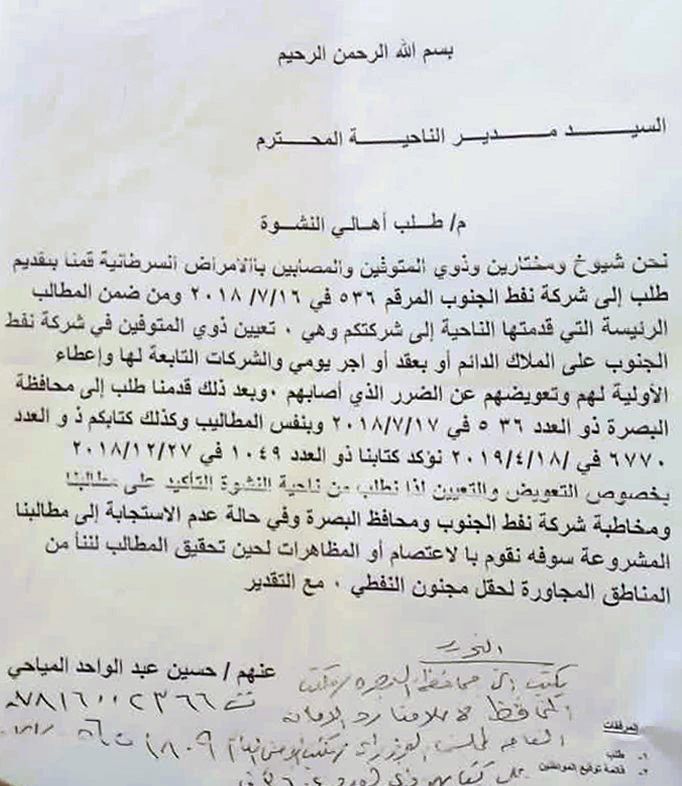 بسم الله الرحمن الرحيم
السيد مدير الناحية المحترم
م/ طلب أهالي النشوة
نحن شيوخ ومختارين وذوي المتوفين والمصابين باالامراض السرطانية قمنا بتقديم
طلب إلى شركة نفط الجنوب المرقم ٥٣٦ في ٢٠١٨/٧/١٦ ومن ضمن المطالب
الرئيسة التي قدمتها الناحية إلى شركتكم وهي ٠ تعيين ذوي المتوفين في شركة نفط
الجنوب على الملاك الدائم أو بعقد أو اجر يومي والشركات التابعة لها وإعطاء
الأولية لهم وتعويضهم عن الضرر الذي أصابهم ٠وبعد ذلك قدمنا طلب إلى محافظة
البصرة ذو العدد ٣٦ ٥ في ٢٠١٨/٧/١٧ وبنفس المطاليب وكذلك كتابكم ذ و العدد
٦٧٧٠ في /٢٠١٩/٤/١٨ نؤكد كتابنا ذو العدد ١٠٤٩ في ٢٠١٨/١٢/٢٧
بخصوص التعويض والتعيين لذا نطلب من ناحية النشوة التأكيد على مطالبنا
ومخاطبة شركة نفط الجنوب ومحافظ البصرة وفي حالة عدم الاستجابة إلى مطالبنا
المشروعة سوفه نقوم با لاعتصام أو المظاهرات لحين تحقيق المطالب لننأ من
المناطق المجاورة لحقل مجنون النفطي ٠ مع التقدير
عنهم / حسين عبد الواحد المياحي
يكتب الى محافظ البصرة / مكتب
المحافظ لاعلامنا رد الامانة
المرفقات
١- طلب
٢- قائمة توقيع المواطنين